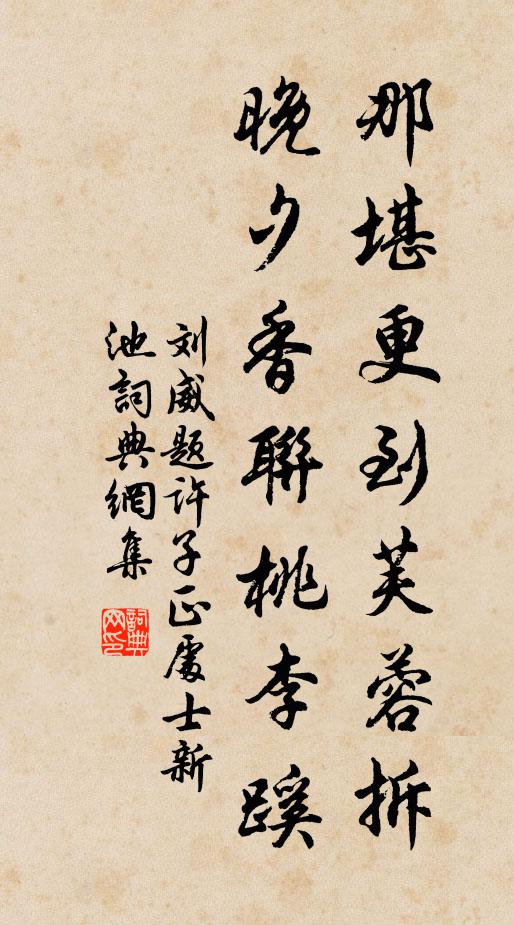 那堪更到芙蓉拆
晚夕香聯桃李蹊
刘威题许子正處士新
池詞典網集
詞典網印